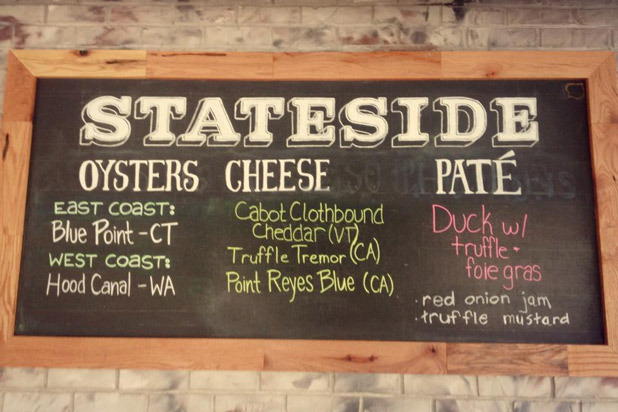 STATESIDE
OYSTERS
EAST COAST:
Blue Point - CT
WEST COAST:
Hood Canal - WA
CHEESE
Cabot Clothbound
Cheddar (VT)
Truffle Tremor (CA)
Point Reyes Blue (CA)
PATÉ
Duck w/
truffle +
foie gras
· red onion jam
· truffle mustard